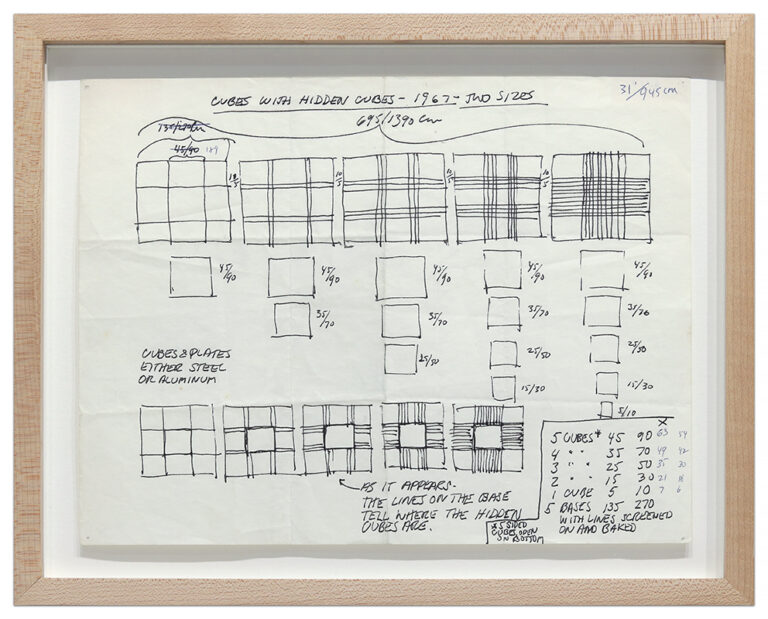 CUBES WITH HIDDEN CUBES - 1967 - TWO SIZES
31"/945cm
695/1390 cm
45/90 189
10/5
10/5
10/5
10/5
45/90
45/90
45/90
45/90
45/90
35/70
35/70
35/70
35/70
25/50
25/50
25/50
15/30
15/30
5/10
CUBES & PLATES
EITHER STEEL
OR ALUMINUM
X
5 CUBES* 45 90 63 54
4 " " 35 70 49 42
3 " " 25 50 35 30
2 " " 15 30 21 18
1 CUBE 5 10 7 6
5 BASES 135 270
WITH LINES SCREENED
ON AND BAKED
AS IT APPEARS.
THE LINES ON THE BASE
TELL WHERE THE HIDDEN
CUBES ARE.
*5 SIDED
CUBES OPEN
ON BOTTOM